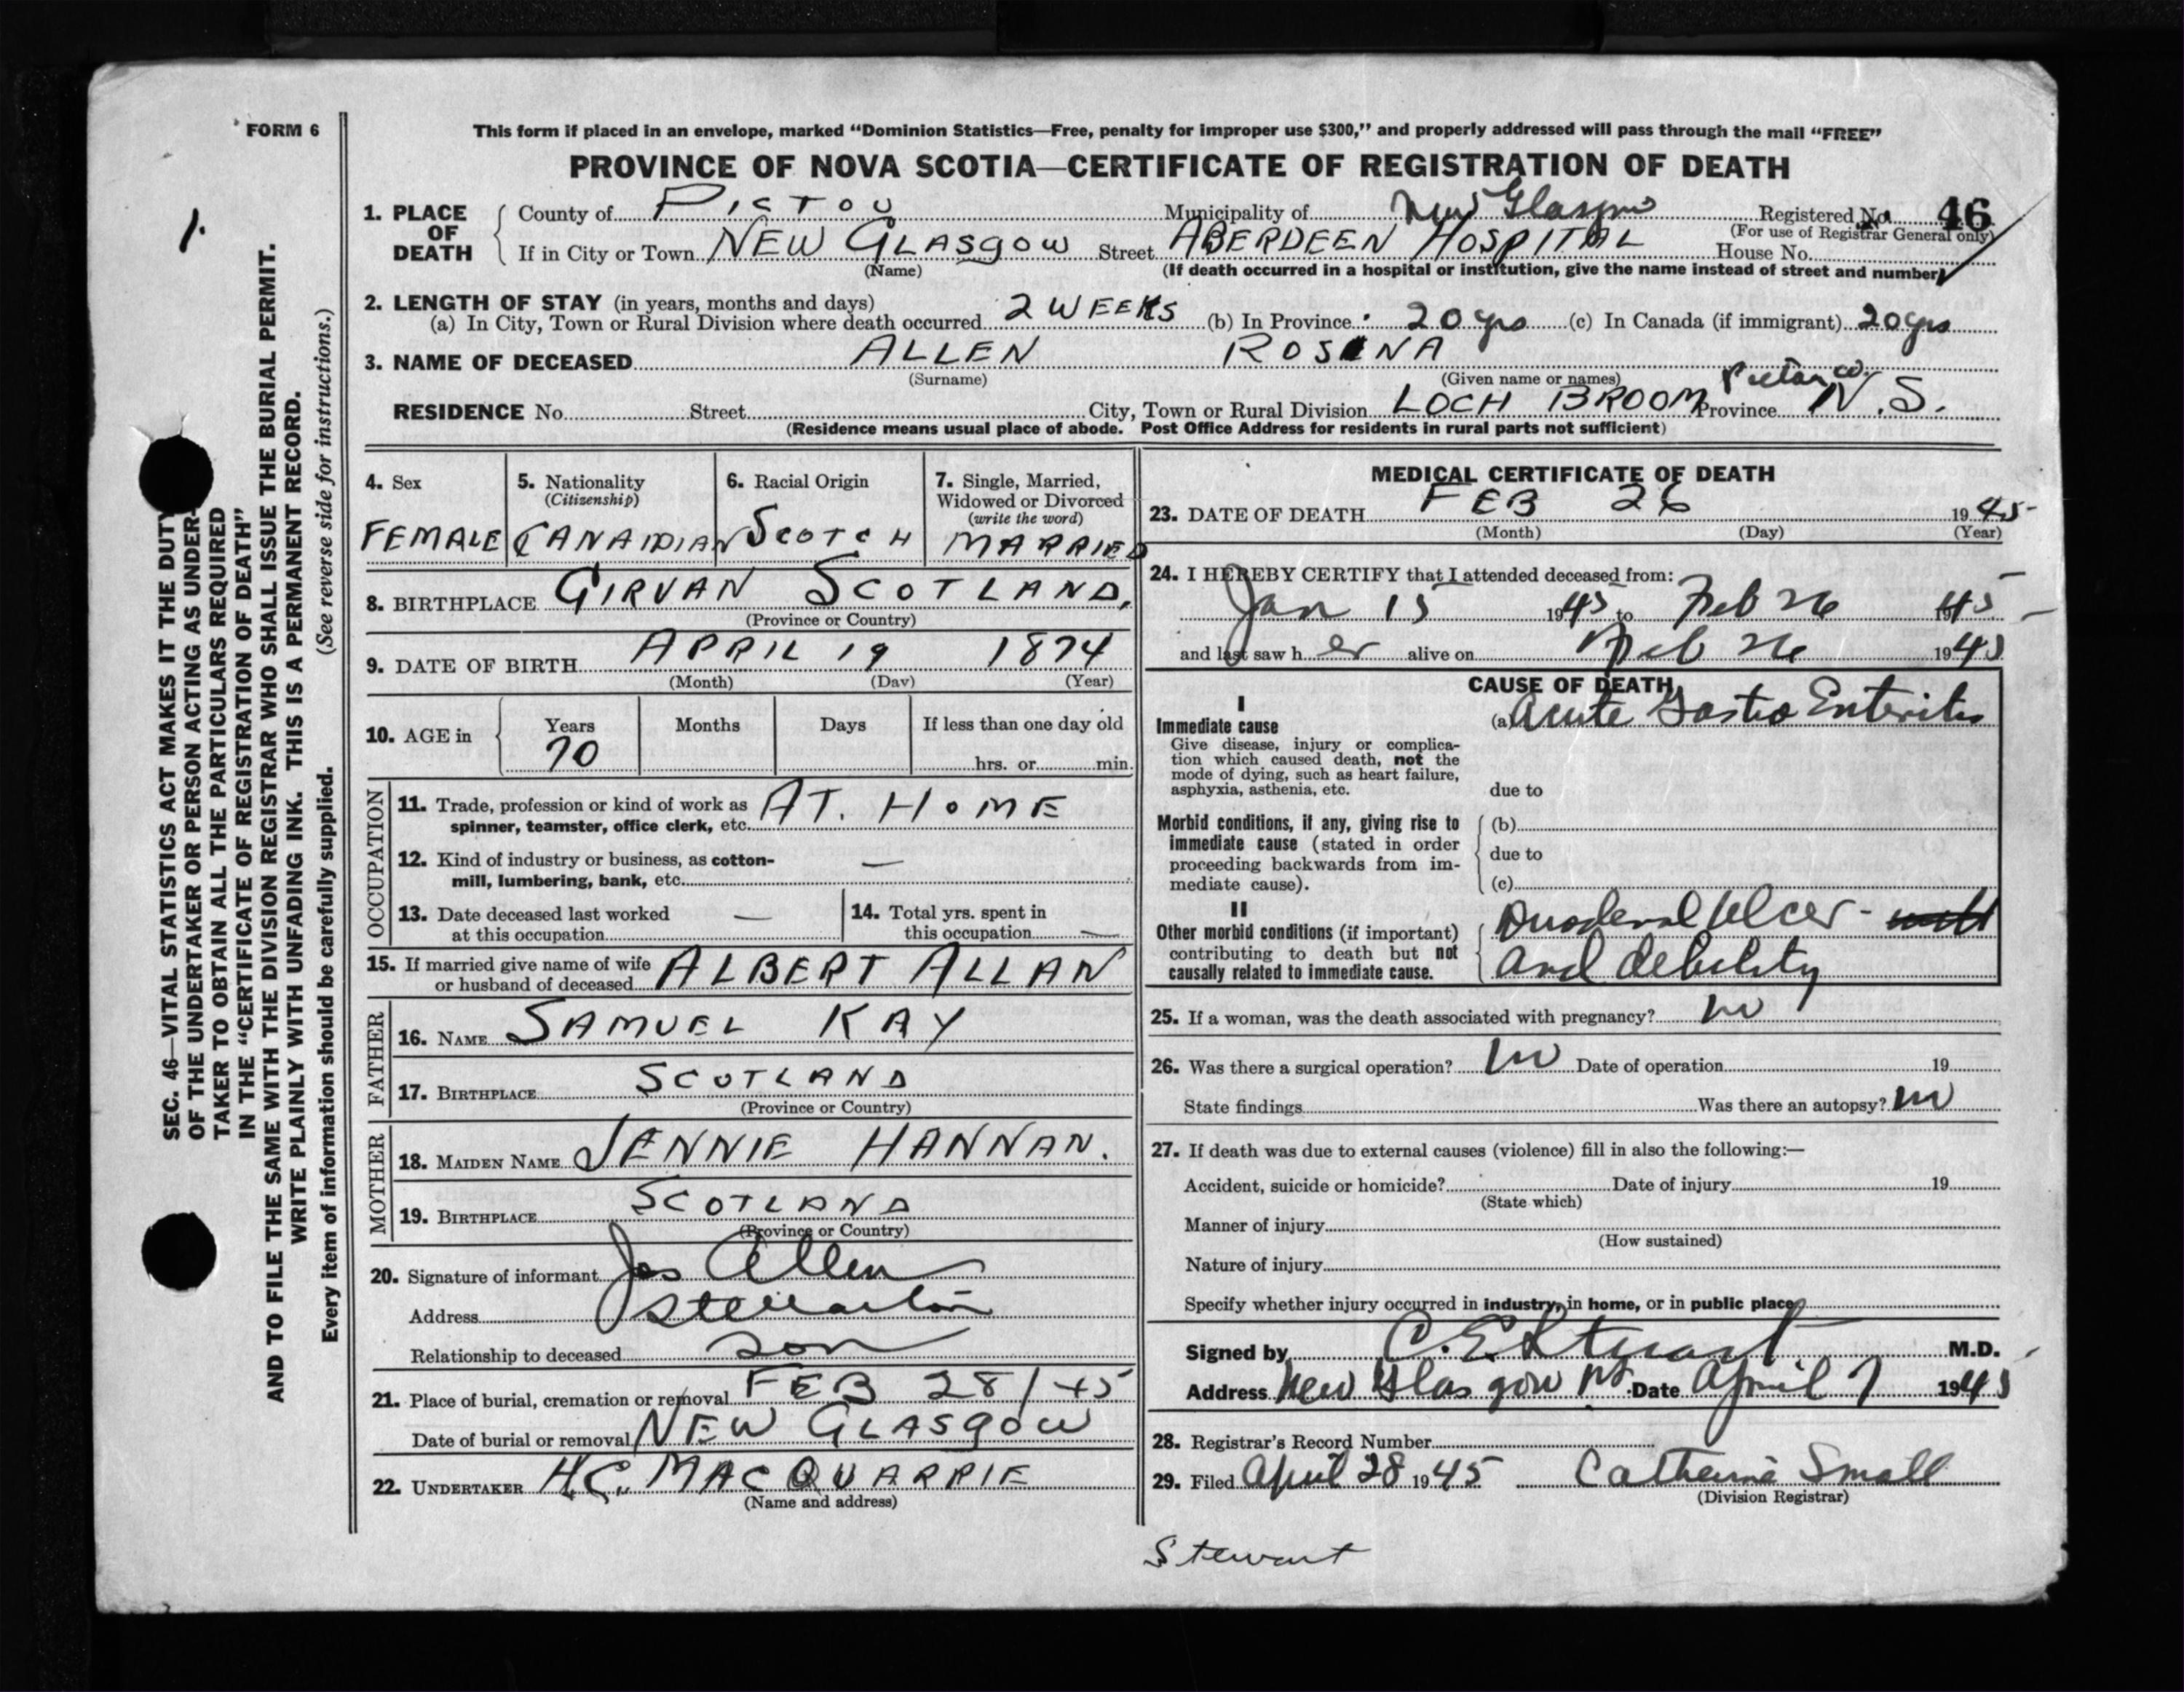 FORM 6
This form if placed in an envelope, marked "Dominion Statistics—Free, penalty for improper use $300," and properly addressed will pass through the mail "FREE"
PROVINCE OF NOVA SCOTIA—CERTIFICATE OF REGISTRATION OF DEATH
1. PLACE OF DEATH
County of PICTOU Municipality of New Glasgow Registered No. 46
(For use of Registrar General only)
If in City or Town NEW GLASGOW Street ABERDEEN HOSPITAL House No.
(Name) (If death occurred in a hospital or institution, give the name instead of street and number)
2. LENGTH OF STAY (in years, months and days)
(a) In City, Town or Rural Division where death occurred 2 WEEKS (b) In Province 20 yrs (c) In Canada (if immigrant) 20 yrs
3. NAME OF DECEASED ALLEN ROSINA
(Surname) (Given name or names)
Pictou Co.
RESIDENCE No. Street City, Town or Rural Division LOCH BROOM Province N.S.
(Residence means usual place of abode. Post Office Address for residents in rural parts not sufficient)
4. Sex
FEMALE
5. Nationality
(Citizenship)
CANADIAN
6. Racial Origin
SCOTCH
7. Single, Married,
Widowed or Divorced
(write the word)
MARRIED
8. BIRTHPLACE GIRVAN SCOTLAND.
(Province or Country)
9. DATE OF BIRTH APRIL 19 1874
(Month) (Day) (Year)
10. AGE in
Years Months Days If less than one day old
70 hrs. or min.
OCCUPATION
11. Trade, profession or kind of work as
spinner, teamster, office clerk, etc. AT. HOME
12. Kind of industry or business, as cotton-
mill, lumbering, bank, etc. —
13. Date deceased last worked
at this occupation —
14. Total yrs. spent in
this occupation —
15. If married give name of wife
or husband of deceased ALBERT ALLAN
FATHER
16. NAME SAMUEL KAY
17. BIRTHPLACE SCOTLAND
(Province or Country)
MOTHER
18. MAIDEN NAME JENNIE HANNAN.
19. BIRTHPLACE SCOTLAND
(Province or Country)
20. Signature of informant Jas Allen
Address Stellarton
Relationship to deceased son
21. Place of burial, cremation or removal FEB 28/45
Date of burial or removal NEW GLASGOW
22. UNDERTAKER H.C. MACQUARRIE
(Name and address)
MEDICAL CERTIFICATE OF DEATH
23. DATE OF DEATH FEB 26 1945
(Month) (Day) (Year)
24. I HEREBY CERTIFY that I attended deceased from:
Jan 15 1945 to Feb 26 1945
and last saw h er alive on Feb 26 1945
CAUSE OF DEATH
I
Immediate cause
(a) Acute Gastro Enteritis
Give disease, injury or complica-
tion which caused death, not the
mode of dying, such as heart failure,
asphyxia, asthenia, etc.
due to
Morbid conditions, if any, giving rise to
immediate cause (stated in order
proceeding backwards from im-
mediate cause).
(b)
due to
(c)
II
Other morbid conditions (if important)
contributing to death but not
causally related to immediate cause.
Duodenal Ulcer -
and debility
25. If a woman, was the death associated with pregnancy? no
26. Was there a surgical operation? no Date of operation 19
State findings Was there an autopsy? no
27. If death was due to external causes (violence) fill in also the following:—
Accident, suicide or homicide? Date of injury 19
(State which)
Manner of injury
(How sustained)
Nature of injury
Specify whether injury occurred in industry, in home, or in public place
Signed by C. E. Stewart M.D.
Address New Glasgow N.S. Date April 7 1945
28. Registrar's Record Number
29. Filed April 28 1945 Catherine Small
(Division Registrar)
Stewart
1.
SEC. 46—VITAL STATISTICS ACT MAKES IT THE DUTY
OF THE UNDERTAKER OR PERSON ACTING AS UNDER-
TAKER TO OBTAIN ALL THE PARTICULARS REQUIRED
IN THE "CERTIFICATE OF REGISTRATION OF DEATH"
AND TO FILE THE SAME WITH THE DIVISION REGISTRAR WHO SHALL ISSUE THE BURIAL PERMIT.
WRITE PLAINLY WITH UNFADING INK. THIS IS A PERMANENT RECORD.
Every item of information should be carefully supplied. (See reverse side for instructions.)